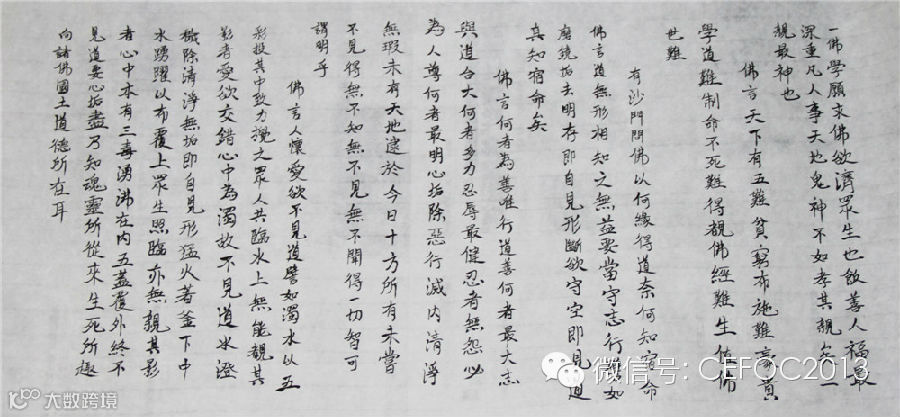 一佛學願求佛欲濟眾生也飯善人福最
深重凡人事天地鬼神不如孝其親矣二
親最神也
佛言天下有五難貧窮布施難豪貴
學道難制命不死難得覩佛經難生值佛
世難
有沙門問佛以何緣得道奈何知宿命
佛言道無形相知之無益要當守志行譬如
磨鏡垢去明存即自見形斷欲守空即見道
真知宿命矣
佛言何者為善唯行道善何者最大志
與道合大何者多力忍辱最健忍者無怨必
為人尊何者最明心垢除惡行滅內清淨
無瑕未有天地逮於今日十方所有未嘗
不見得無不知無不見無不聞得一切智可
謂明乎
佛言人懷愛欲不見道譬如濁水以五
彩投其中致力攪之眾人共臨水上無能覩其
影者愛欲交錯心中為濁故不見道水澄
穢除清淨無垢即自見形猛火著釜下中
水踴躍以布覆上眾生照臨亦無覩其影
者心中本有三毒湧沸在內五蓋覆外終不
見道要心垢盡乃知魂靈所從來生死所趣
向諸佛國土道德所在耳
微信号: CEFOC2013
大数跨境